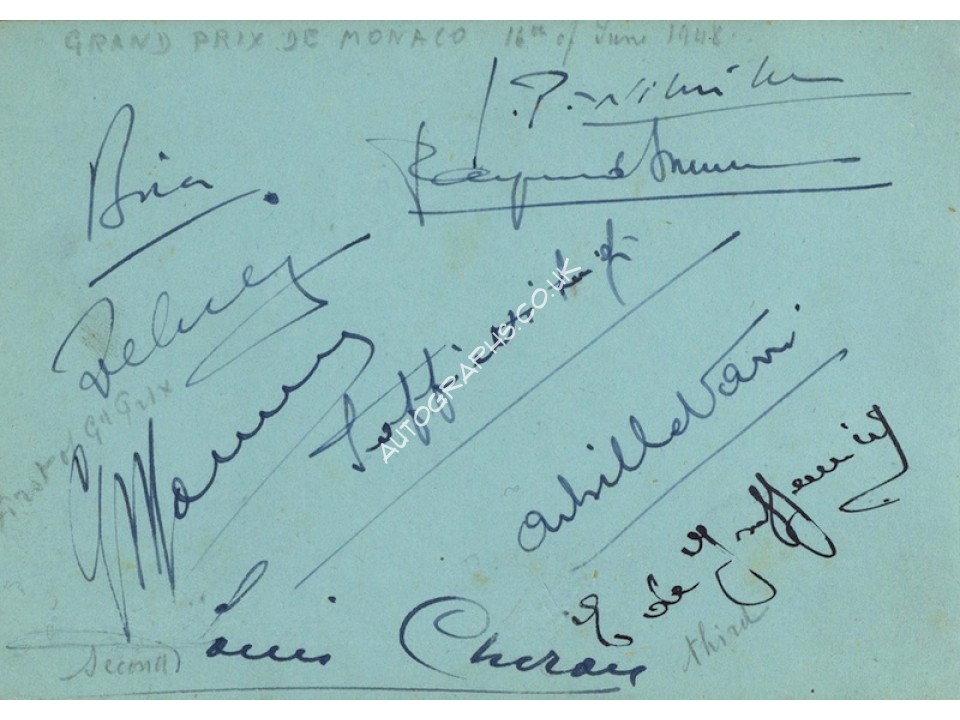 GRAND PRIX DE MONACO 16th of June 1948.
J.P. Wimille
Bira
Raymond Sommer
Achille Varzi
First of Gd Prix
E de Graffenried
Louis Chiron
Second
third
AUTOGRAPHS.CO.UK